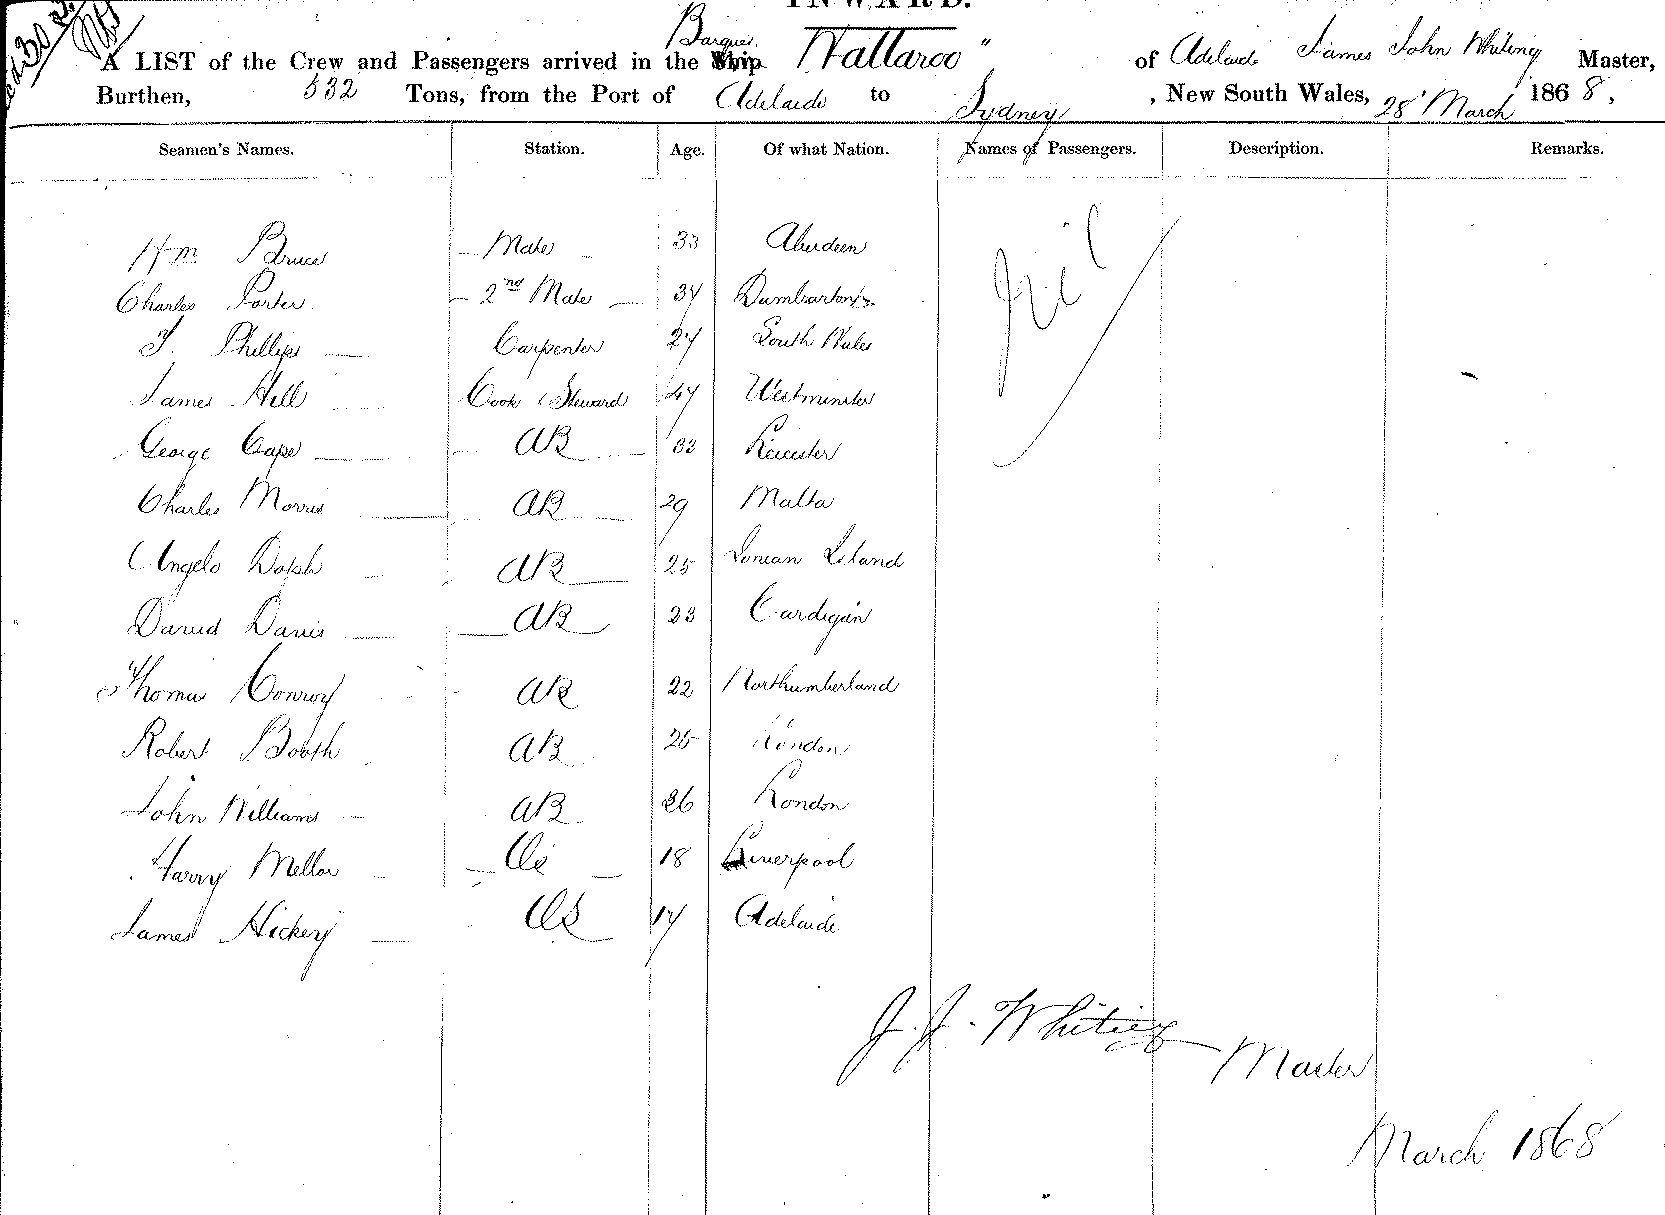 INWARD.
A LIST of the Crew and Passengers arrived in the Ship Barque "Wallaroo" of Adelaide James John Whiting Master,
Burthen, 532 Tons, from the Port of Adelaide to Sydney, New South Wales, 28 March 1868,
Seamen's Names. Station. Age. Of what Nation. Names of Passengers. Description. Remarks.
Wm Bruce Mate 33 Aberdeen Nil
Charles Porter 2nd Mate 34 Dumbarton
T. Phillips Carpenter 27 South Wales
James Hill Cook & Steward 47 Westminster
George Cape AB 33 Leicester
Charles Morris AB 29 Malta
Angelo AB 25 Ionian Island
David Davis AB 23 Cardigan
Thomas Conroy AB 22 Northumberland
Robert Booth AB 25 London
John Williams AB 26 London
Harry Mellor OS 18 Liverpool
James Hickey OS 17 Adelaide
J. J. Whiting Master
March 1868